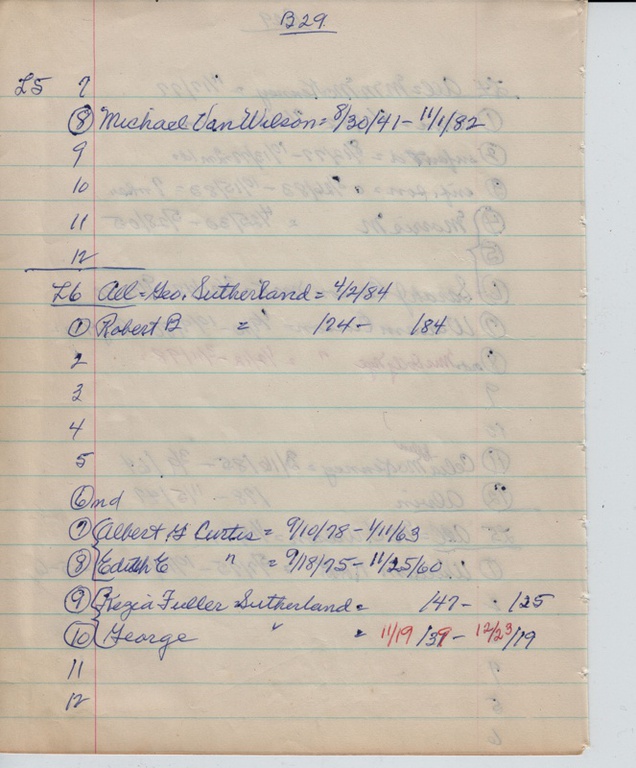 B 29.
L5 7
8 Michael Van Wilson = 8/30/41 - 11/1/82
9
10
11
12
L6 All = Geo. Sutherland = 4/2/84
1 Robert B = /24 - /84
2
3
4
5
6 nd
7 Albert G Curtis = 9/10/78 - 1/11/63
8 Edith E " = 9/18/75 - 11/25/60
9 Kezia Fuller Sutherland = /47 - /25
10 George " = 11/19/39 - 12/23/19
11
12